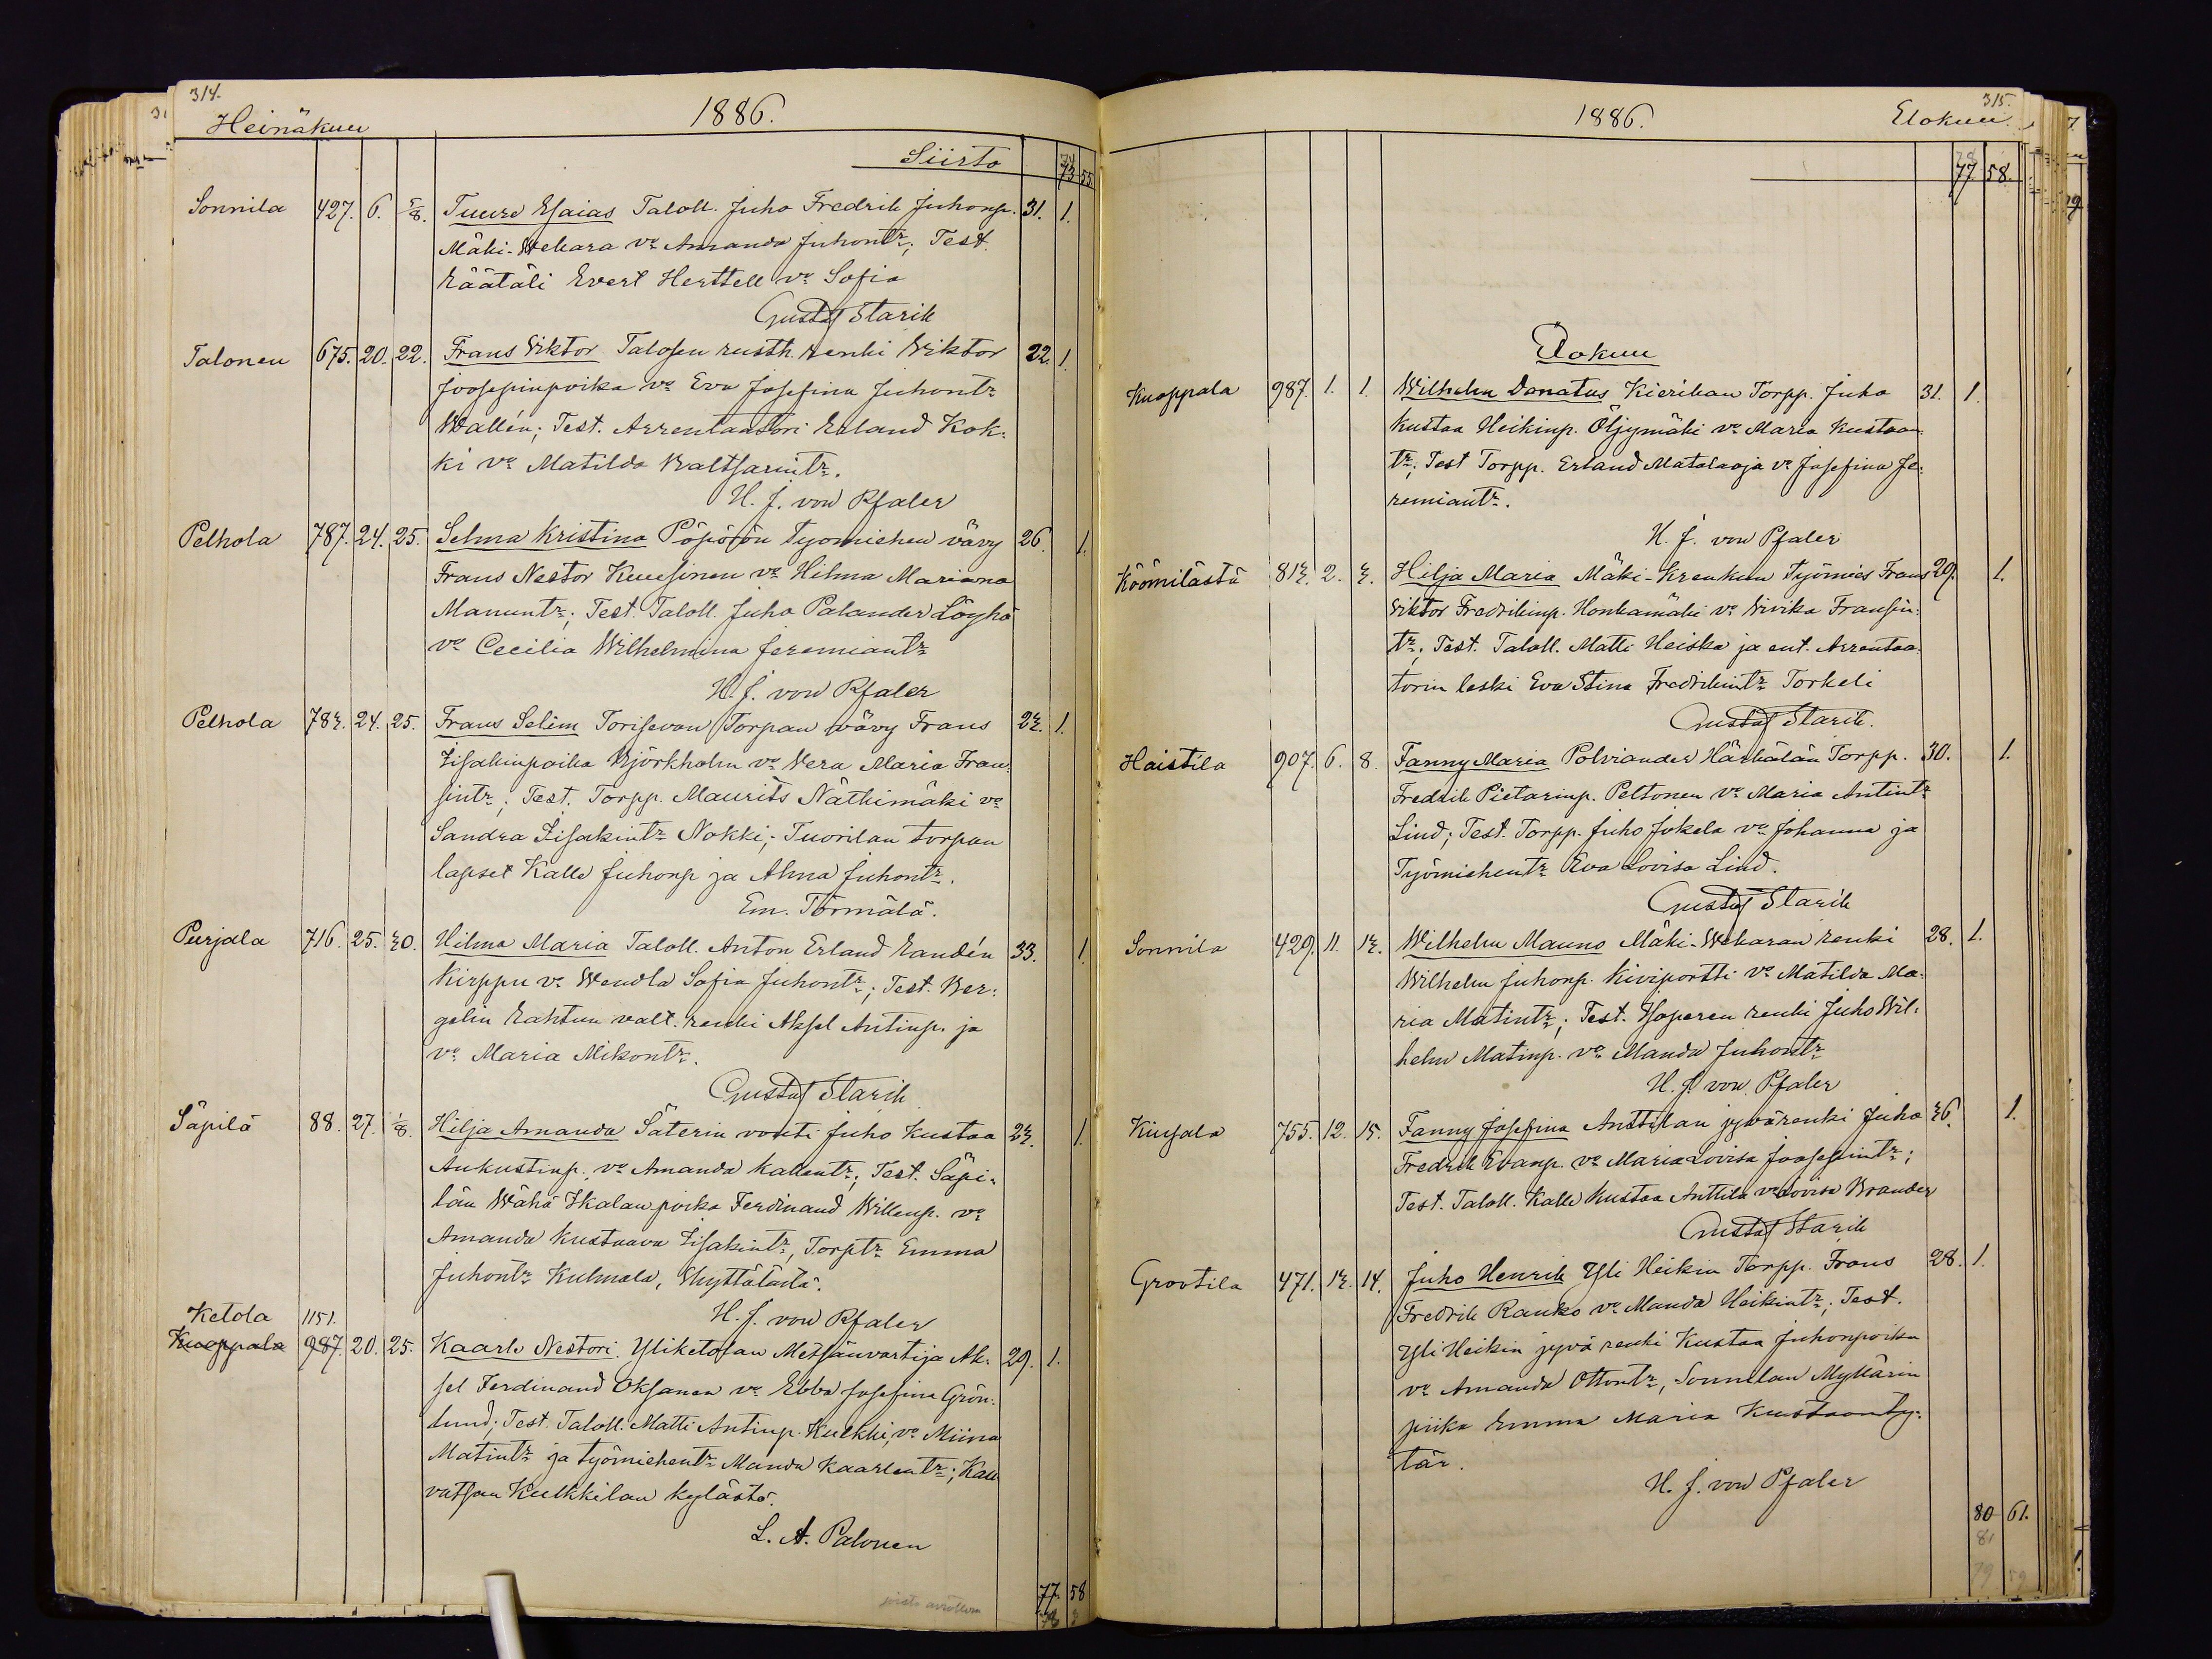 314.
Heinäkuu 1886.
Siirto 73 55
Sonnila 427. 6. 5/8. Tuure Esaias Taloll. Juho Fredrik Juhonp. 31. 1.
Mäki-Wekara vo Amanda Juhontr; Test.
Räätäli Evert Herttell vo Sofia
Gustaf Starik
Talonen 675. 20. 22. Frans Viktor Talosen rusth. renki Wiktor 22. 1.
Joosepinpoika vo Eva Josefina Juhontr
Wallén; Test. Arrentaatori Erland Kok-
ki vo Matilda Baltsarintr.
H. J. von Pfaler
Pelhola 787. 24. 25. Selma Kristina Pöpösön työmiehen vävy 26. 1.
Frans Nestor Kuusinen vo Hilma Mariana
Manuntr; Test. Taloll. Juho Palander Löyhö
vo Cecilia Wilhelmina Jeremiantr
H. J. von Pfaler
Pelhola 783. 24. 25. Frans Selim Torisevan Torpan vävy Frans 23. 1.
Iisakinpoika Björkholm vo Vera Maria Fran-
sintr; Test. Torpp. Maurits Näthimäki vo
Sandra Iisakintr Nokki; Tuorilan torpan
lapset Kalle Juhonp ja Alma Juhontr.
Em. Törmälä.
Purjala 716. 25. 30. Hilma Maria Taloll. Anton Erland Randén 33. 1.
Kirppu vo Wendla Sofia Juhontr; Test. Ber-
gelin Rahtun valt. renki Aksel Antinp. ja
vo Maria Mikontr.
Gustaf Starik
Säpilä 88. 27. 1/8. Hilja Amanda Säterin vouti Juho Kustaa 23. 1.
Aukustinp. vo Amanda Kallentr; Test. Säpi-
län Wähä Ikalan poika Ferdinand Willenp. vo
Amanda Kustaava Iisakintr, Torptr Emma
Juhontr Kulmala,
H. J. von Pfaler
Ketola 1151.
Kuoppala 987. 20. 25. Kaarle Nestori Yliketolan Metsänvartija Ak- 29. 1.
sel Ferdinand Oksanen vo Ebba Josefina Grön-
lund; Test. Taloll. Matti Antinp. Kulkki, vo Miina
Matintr ja työmiehentr Manda Kaarlentr; Kau
vatsan Kulkkilan kylästä.
L. A. Palonen
77 58
315.
1886. Elokuu.
77. 58.
Elokuu
Kuoppala 987. 1. 1. Wilhelm Donatus Kierikan Torpp. Juho 31. 1.
Kustaa Heikinp. Öljymäki vo Maria Kustaan-
tr; Test Torpp. Erland Matalaoja vo Josefina Je-
remiantr.
H. J. von Pfaler
Köömilästä 813. 2. 3. Hilja Maria Mäki-Krenkun Työmies Frans 29. 1.
Viktor Fredrikinp. Honkamäki vo Vivika Fransin-
tr; Test. Taloll. Matti Heiska ja ent. Arrentaa-
torin leski Eva Stina Fredrikintr Torkeli
Gustaf Starik.
Haistila 907. 6. 8. Fanny Maria Polviander Härkälän Torpp. 30. 1.
Fredrik Pietarinp. Peltonen vo Maria Antintr
Lind; Test. Torpp. Juho Jokela vo Johanna ja
Työmiehentr Eva Lovisa Lind.
Gustaf Starik
Sonnila 429. 11. 13. Wilhelm Mauno Mäki-Wekaran renki 28. 1.
Wilhelm Juhonp. Kiviportti vo Matilda Ma-
ria Matintr; Test. renki Juho Wil-
helm Matinp. vo Manda Juhontr
H. J. von Pfaler
755. 12. 15. Fanny Josefina Anttilan jyvärenki Juho 36. 1.
Fredrik Evanp. vo Maria Lovisa Joosepintr;
Test. Taloll. Kalle Kustaa Anttila vo Lovisa Brander
Gustaf Starik
Grootila 471. 13. 14. Juho Henrik Yli Heikin Torpp. Frans 28. 1.
Fredrik Ranko vo Manda Heikintr; Test.
Yli Heikin jyvä renki Kustaa Juhonpoika
vo Amanda Ottontr, Sonnilan Myllärin
piika Emma Maria Kustaanty-
tär.
H. J. von Pfaler
80 61.
81
79 59